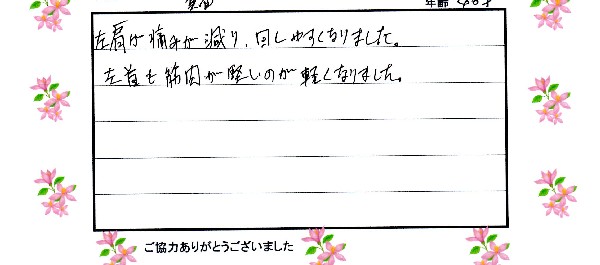 年齢
左肩が痛みが減り、回しやすくなりました。
左首も筋肉が堅いのが軽くなりました。
ご協力ありがとうございました